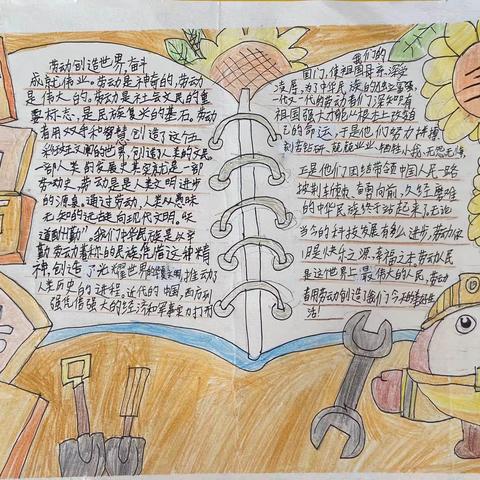 劳动创造世界,奋斗
成就伟业。劳动是神奇的,劳动
是伟大的。劳动是社会文民的重
要标志,是民族复兴的基石。劳动
者用双手和智慧创造了这个五
彩斑斓的世界,创造了人类的文明。
一部人类的发展史实就是一部
劳动史,劳动是是人类文明进步
的源泉,通过劳动,人类从愚昧
无知的远古走向现代文明。"天
道酬勤"。我们中华民族是以辛
勤劳动著称的民族凭借这种精
神,创造了光耀世界的华夏文明,推动了
人类历史的进程。近代的中国,西方列
强凭借强大的经济和军事实力打开
我们的
国门,使祖国母亲,深受
凌辱,为了中华民族的独立富强,
一代又一代的劳动者们深知唯有
祖国强大才能从根本上改变自
己的命运,于是他们努力拼搏
刻苦钻研,兢兢业业,牺牲小我,无怨无悔,
正是他们团结带领中国人民一路
披荆斩棘,奋勇向前,久经磨难
的中华民族终于站起来了,无论
当今的科技发展有多么进步,劳动依
旧是快乐之源,幸福之本劳动人民
是这世界上最伟大的人民,劳动
者用劳动创造了我们今天的幸福生
活!